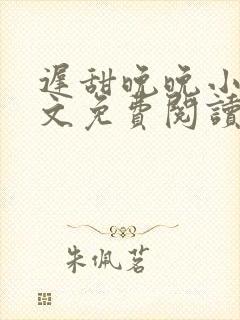 遲甜晚晚小
文免費閱讀
朱佩茗